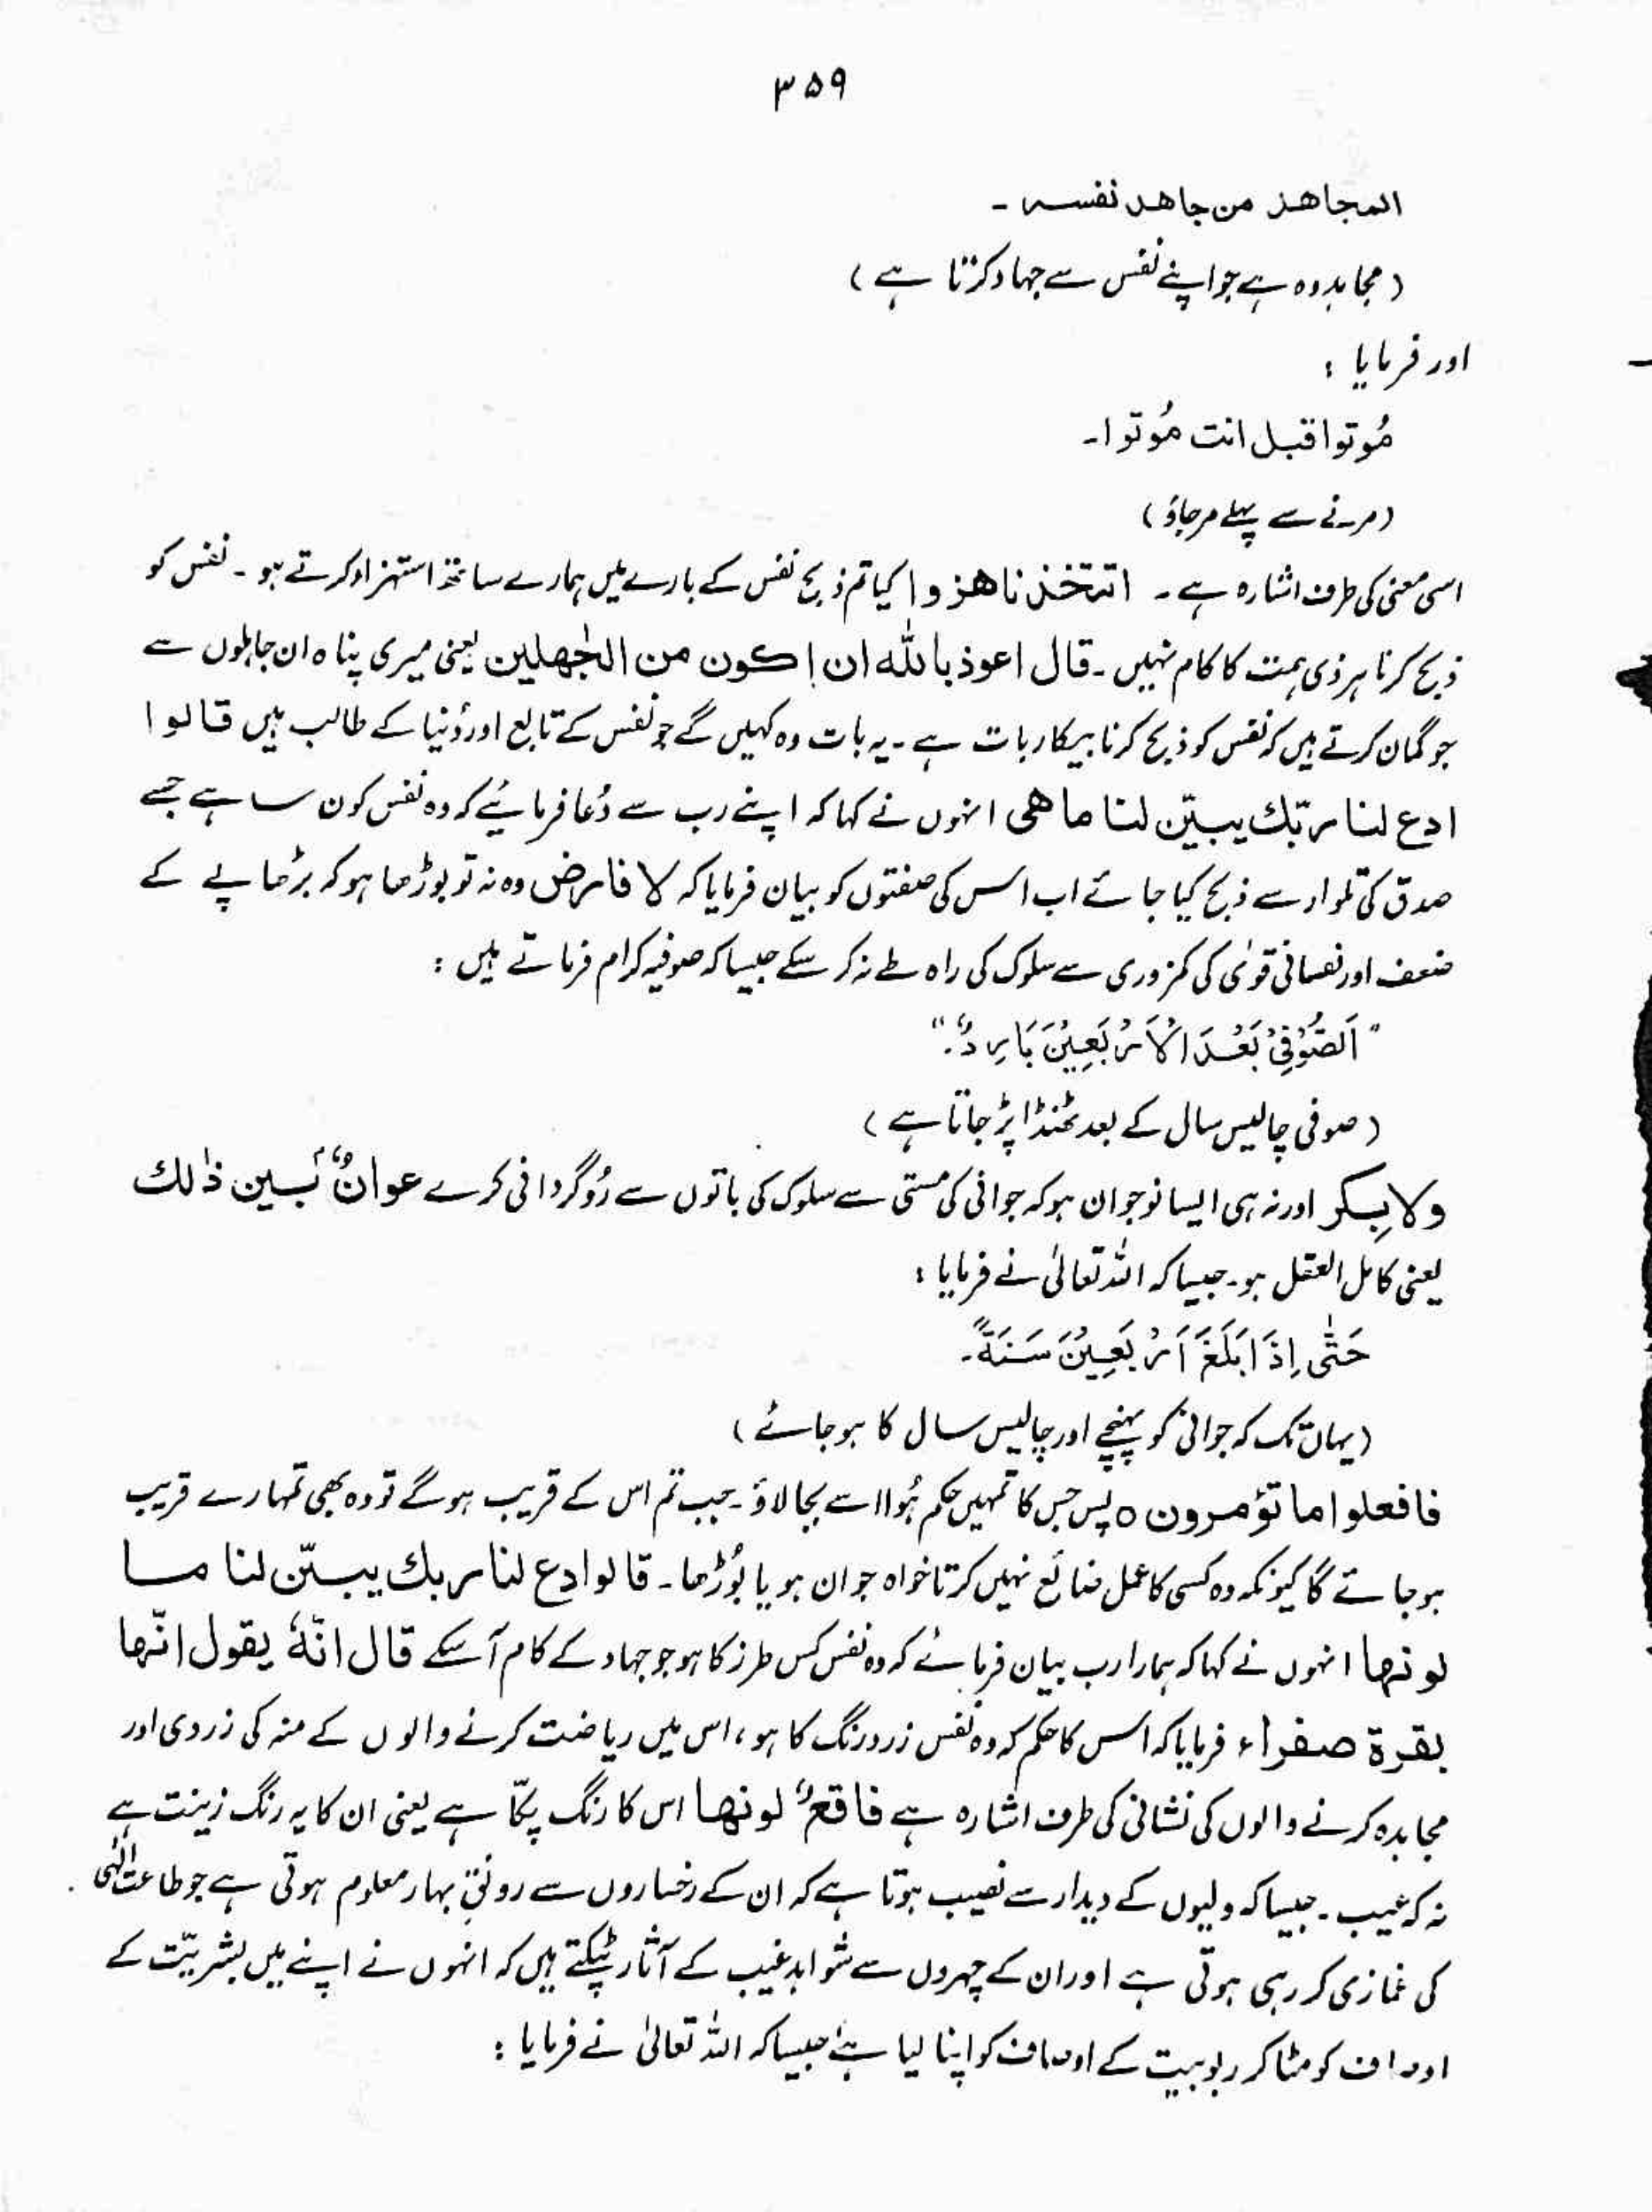 ۳۵۹
المجاهد من جاهد نفسه ۔
(مجاہد وہ ہے جو اپنے نفس سے جہاد کرتا ہے)
اور فرمایا :
مُوتوا قبل انت مُوتوا۔
(مرنے سے پہلے مرجاؤ)
اسی معنی کی طرف اشارہ ہے ۔ اتتخذنا هزوا کیا تم ذبح نفس کے بارے میں ہمارے ساتھ استہزاء کرتے ہو ۔ نفس کو
ذبح کرنا ہر ذی ہمت کا کام نہیں ۔ قال اعوذ باللّٰه ان اكون من الجٰهلين یعنی میری پناہ ان جاہلوں سے
جو گمان کرتے ہیں کہ نفس کو ذبح کرنا بیکار بات ہے ۔ یہ بات وہ کہیں گے جو نفس کے تابع اور دُنیا کے طالب ہیں قالوا
ادع لنا ربّك يبيّن لنا ما هى انہوں نے کہا کہ اپنے رب سے دُعا فرمائیے کہ وہ نفس کون سا ہے جسے
صدق کی تلوار سے ذبح کیا جائے اب اس کی صفتوں کو بیان فرمایا کہ لا فارض وہ نہ تو بوڑھا ہو کہ بڑھاپے کے
ضعف اور نفسانی قوٰی کی کمزوری سے سلوک کی راہ طے نہ کر سکے جیسا کہ صوفیہ کرام فرماتے ہیں :
"اَلصُّوْفِىْ بَعْدَ الْاَرْبَعِيْنَ بَارِدٌ۔"
(صوفی چالیس سال کے بعد ٹھنڈا پڑ جاتا ہے)
ولا بِكر اور نہ ہی ایسا نوجوان ہو کہ جوانی کی مستی سے سلوک کی باتوں سے رُوگردانی کرے عوانٌ بَين ذٰلك
یعنی کامل العقل ہو۔ جیسا کہ اللہ تعالیٰ نے فرمایا :
حَتّٰى اِذَا بَلَغَ اَرْبَعِيْنَ سَنَةً۔
(یہاں تک کہ جوانی کو پہنچے اور چالیس سال کا ہو جائے)
فافعلوا ما تؤمرون ٥ پس جس کا تمہیں حکم ہُوا اسے بجا لاؤ ۔ جب تم اس کے قریب ہو گے تو وہ بھی تمہارے قریب
ہو جائے گا کیونکہ وہ کسی کا عمل ضائع نہیں کرتا خواہ جوان ہو یا بُوڑھا ۔ قالوا ادع لنا ربك يبيّن لنا ما
لونها انہوں نے کہا کہ ہمارا رب بیان فرمائے کہ وہ نفس کس طرز کا ہو جو جہاد کے کام آسکے قال انّهٗ يقول انّها
بقرة صفراء فرمایا کہ اس کا حکم کہ وہ نفس زرد رنگ کا ہو ، اس میں ریاضت کرنے والوں کے منہ کی زردی اور
مجاہدہ کرنے والوں کی نشانی کی طرف اشارہ ہے فاقعٌ لونها اس کا رنگ پکّا ہے یعنی ان کا یہ رنگ زینت ہے
نہ کہ عیب ۔ جیسا کہ ولیوں کے دیدار سے نصیب ہوتا ہے کہ ان کے رخساروں سے رونقِ بہار معلوم ہوتی ہے جو طاعت الٰہی
کی غمازی کر رہی ہوتی ہے اور ان کے چہروں سے شواہد غیب کے آثار ٹپکتے ہیں کہ انہوں نے اپنے میں بشریّت کے
اوصاف کو مٹا کر ربوبیت کے اوصاف کو اپنا لیا ہے جیسا کہ اللہ تعالیٰ نے فرمایا :